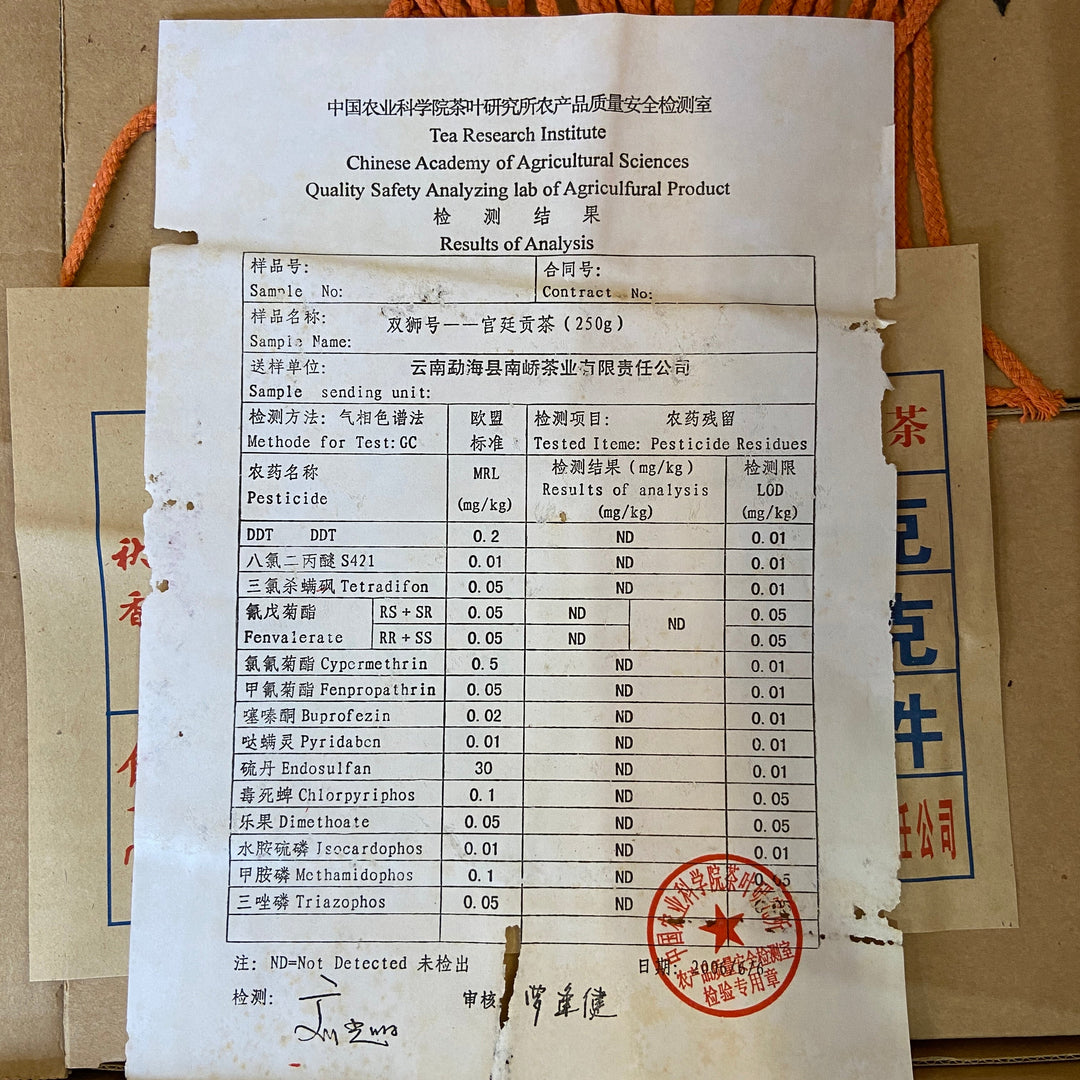 中国农业科学院茶叶研究所农产品质量安全检测室
Tea Research Institute
Chinese Academy of Agricultural Sciences
Quality Safety Analyzing lab of Agriculfural Product
检 测 结 果
Results of Analysis
样品号: 合同号:
Sample No: Contract No:
样品名称: 双狮号——宫廷贡茶(250g)
Sample Name:
送样单位: 云南勐海县南峤茶业有限责任公司
Sample sending unit:
检测方法: 气相色谱法 欧盟 检测项目: 农药残留
Methode for Test:GC 标准 Tested Iteme: Pesticide Residues
农药名称 MRL 检测结果(mg/kg) 检测限
Pesticide (mg/kg) Results of analysis LOD
(mg/kg) (mg/kg)
DDT DDT 0.2 ND 0.01
八氯二丙醚 S421 0.01 ND 0.01
三氯杀螨砜 Tetradifon 0.05 ND 0.01
氰戊菊酯 RS+SR 0.05 ND ND 0.05
Fenvalerate RR+SS 0.05 ND 0.05
氯氰菊酯 Cypermethrin 0.5 ND 0.01
甲氰菊酯 Fenpropathrin 0.05 ND 0.01
噻嗪酮 Buprofezin 0.02 ND 0.01
哒螨灵 Pyridaben 0.01 ND 0.01
硫丹 Endosulfan 30 ND 0.01
毒死蜱 Chlorpyriphos 0.1 ND 0.05
乐果 Dimethoate 0.05 ND 0.05
水胺硫磷 Isocardophos 0.01 ND 0.01
甲胺磷 Methamidophos 0.1 ND
三唑磷 Triazophos 0.05 ND
注: ND=Not Detected 未检出
日期:
检测: 审核:
中国农业科学院茶叶研究所
农产品质量安全检测室
检验专用章
秋
香
茶
克
克
件
任公司